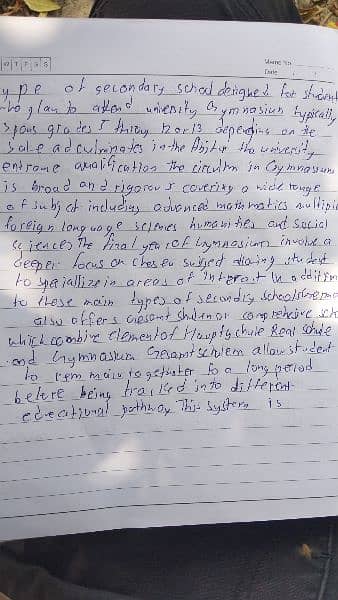 Memo No
Date
ype of secondary school designed for student
who plan to attend university Gymnasium typically
Spans grades 5 throuy 12 or 13 depending on the
and culminates in the Abitur the university
entrance qualification The in Gymnasium
is broad and rigorous covering a wide range
of subject including advanced mathmatics multiple
foreign language sciences humanities and Social
sciences The final year of Gymnasium involve a
deeper focus on subject allowing student
to specialize in areas of Interest In addition
to these main types of secondary school
also offers or comprehensive
which combine element of Hauptschule Real Schule
and Gymnasium allow student
to to for a long period
before being tracked into different
educational pathway This system is